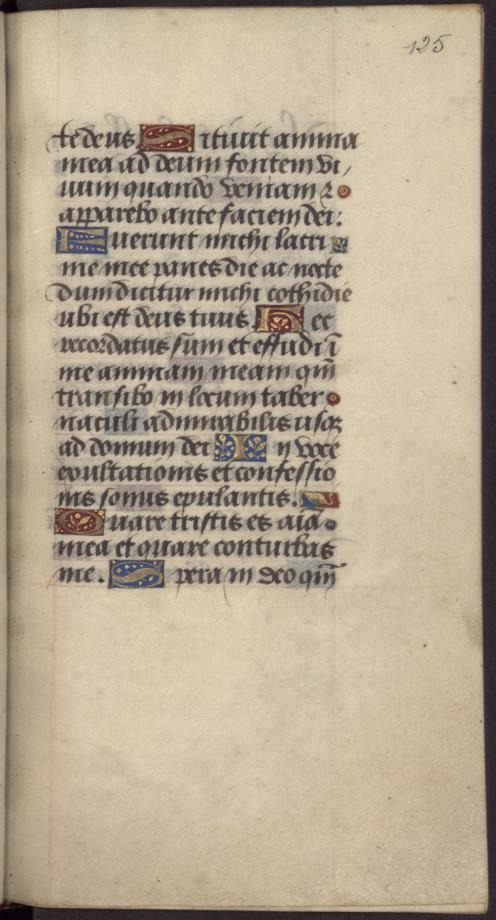 125
te deus Sitiuit anima
mea ad deum fontem vi
uum quando veniam ꝛ
apparebo ante faciem dei.
Fuerunt michi lacri
me mee panes die ac nocte
dum dicitur michi cothidie
ubi est deus tuus Hec
recordatus sum et effudi ī
me animam meam qm̄
transibo in locum taber
naculi admirabilis usqꝫ
ad domum dei In voce
exultationis et confessio
nis sonus epulantis.
Quare tristis es aīa
mea et quare conturbas
me. Spera in deo qm̄